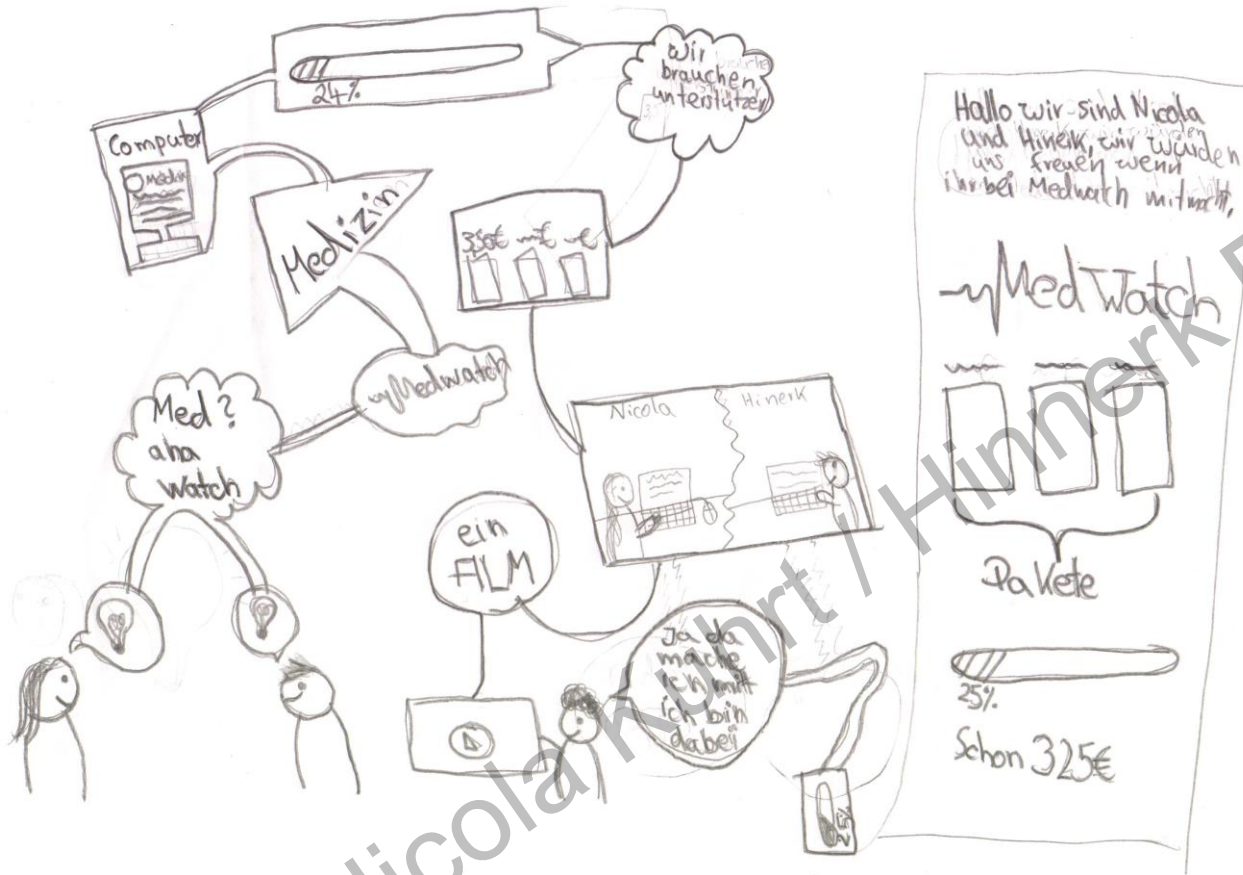 24%
Wir
brauchen
unterstützer
Computer
Medizin
350€ €
Medwatch
Med?
aha
Watch
Nicola Hinerk
ein
FILM
Ja da
mache
ich mit
ich bin
dabei
Hallo wir sind Nicola
und Hinerk, wir würden
uns freuen wenn
ihr bei Medwatch mitmacht,
MedWatch
Pakete
25%
Schon 325€
Nicola Kuhrt / Hinnerk